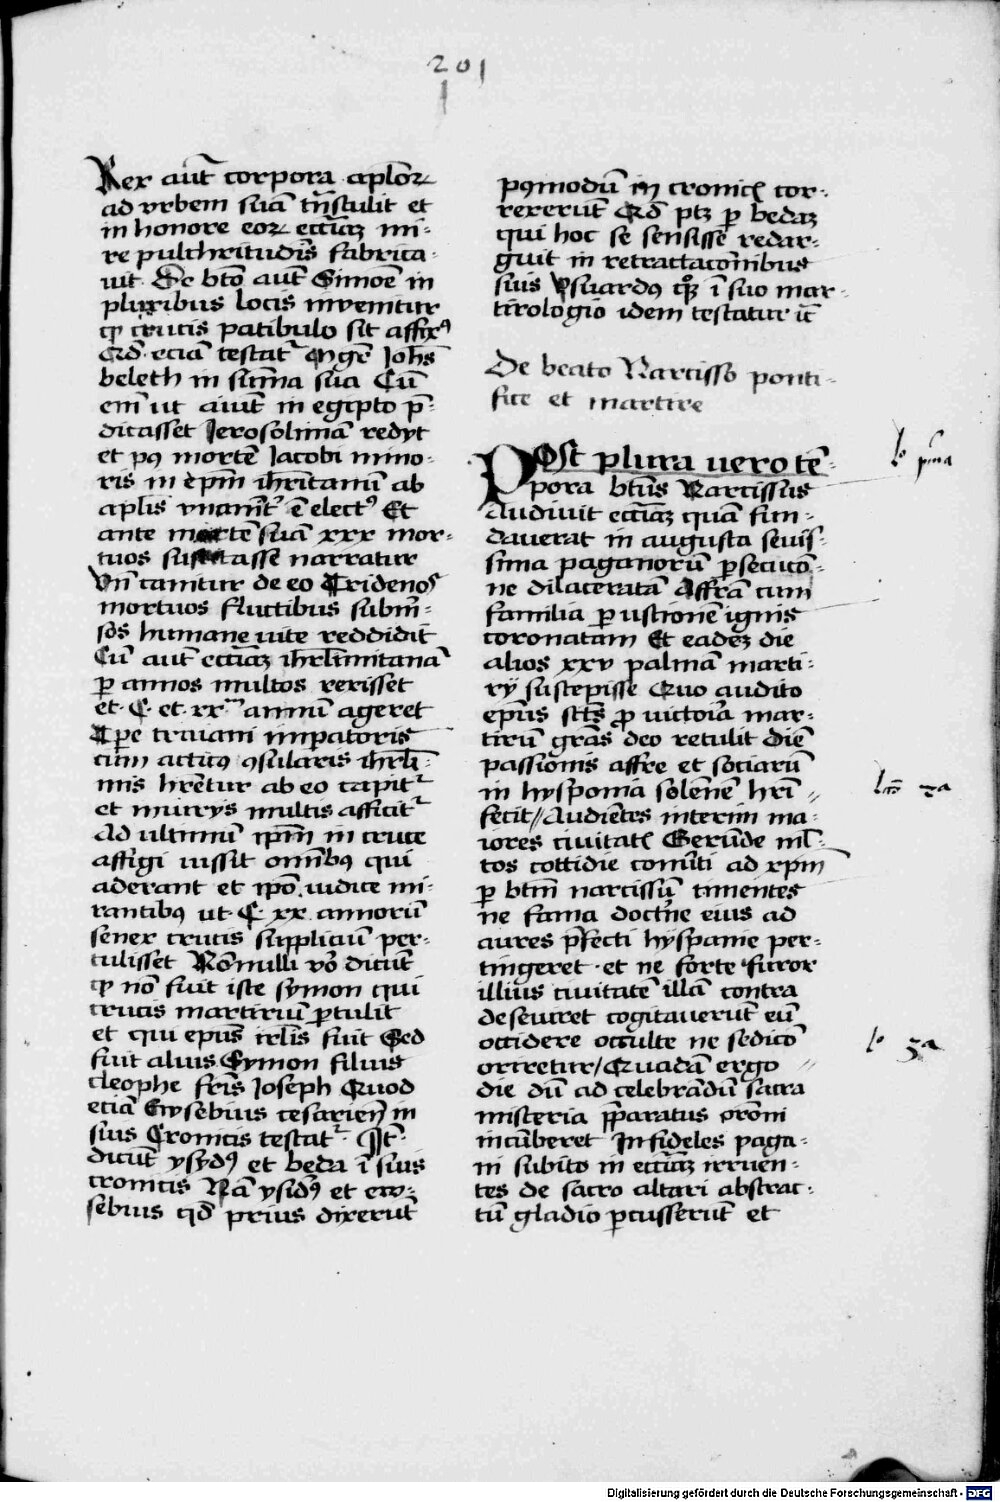 201
Rex aut̄ corpora aplōꝝ
ad vrbem suā tn̄stulit et
in honore eoꝝ ecciāꝫ mi-
re pulchritudis̄ fabrica-
uit. De btō aut̄ Simōe in
pluribus locis inuenitur
ꝙ crucis patibulo sit affixꝰ
Qd̄ eciā testat̉ mgr̄ Johēs
beleth in sum̄a sua Cū
em̄ ut aiut̄ in egipto p̄-
dicasset Jerosolimā redyt
et pꝰ mortē Jacobi mino-
ris in ep̄m ihr̄itanū ab
aplis̄ vnanit̄ ē electꝰ Et
ante mortē suā xxx mor-
tuos suscitasse narratur
Vn̄ canitur de eo Tridenos
mortuos fluctibus subm̄-
sos humane uite reddidit
Cū aut̄ ecciāꝫ ihrl̄imitanā
ꝑ annos multos rexisset
et C. et xx annū ageret
Tꝑe traiani imꝑatoris
cum acticꝰ ꝯsularis ihrl̄i-
mis hrētur ab eo capit̉
et iniuryꝭ multis afficit̉
Ad ultimū ip̄m in cruce
affigi iussit om̄ibꝰ qui
aderant et ip̄o iudice mi-
rantibꝰ ut C xx annorū
senex crucis suppliciū per-
tulisset Nōnulli vō dicūt
ꝙ nō fuit iste symon qui
crucis martiriū ꝑtulit
et qui ep̄us irl̄is fuit Sed
fuit alius Symon filius
cleophe fr̄is Joseph Quod
eciā Ewsebius cesarien̄ in
suis Cronicis testat̉. It̄
dicūt ysydꝰ et beda ī suis
cronicis Nā ysidꝰ et ew-
sebius qd̄ prius dixerūt
pꝰmodū in cronicꝭ cor-
rexerūt Qd̄ ptꝫ ꝑ bedaꝫ
qui hoc se sensisse redar-
guit in retractacōnibus
suis Vsuardꝰ qꝫ ī suo mar-
tirologio idem testatur it̄
De beato Narcisso ponti-
fice et martire
POst plura uero tē-
pora btūs Narcissus
Audiuit ecciāꝫ quā fun-
dauerat in augusta seuis-
sima paganorū ꝑsecucō-
ne dilaceratā Affrā cum
familia ꝑ ustionē ignis
coronatam Et eadeꝫ die
alios xxv palmā marti-
rÿ suscepisse Quo audito
ep̄us sct̄s ꝓ victoīa mar-
tirū grās deo retulit Diē
passionis affre et sociarū
in hyspania solēnē hr̄i
fecit // Audiētes interim ma-
iores ciuitatꝭ Gerūde ml̄-
tos cottidie conuīti ad xp̄m
ꝑ btm̄ narcissū timentes
ne fama doctn̄e eius ad
aures p̄fecti hyspanie per-
tingeret et ne forte furor
illius ciuitatē illā contra
deseuiret cogitauerūt eū
occidere occulte ne sedicō
oriretur / Quadā ergo
die dū ad celebrādū sacra
misteria p̄paratus orōni
incūberet Infideles paga-
ni subito in ecciāꝫ irruen-
tes de sacro altari abstrac-
tū gladio ꝑcusserūt et
lº pm̄a
2a
lº 3a
Digitalisierung gefördert durch die Deutsche Forschungsgemeinschaft - DFG